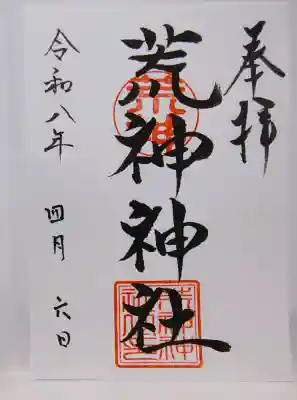 奉拝
荒神神社
令和八年 四月 六日